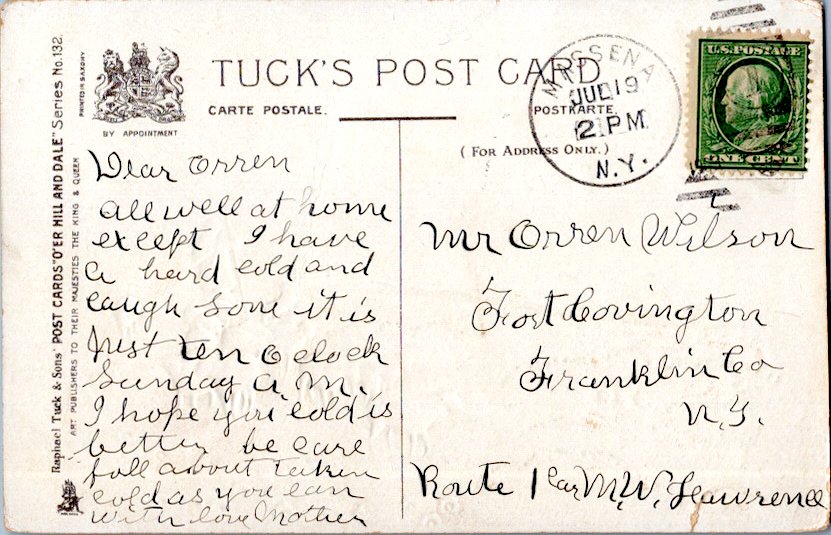 TUCK'S POST CARD
CARTE POSTALE.
POSTKARTE.
(FOR ADDRESS ONLY.)
BY APPOINTMENT
PRINTED IN SAXONY
Raphael Tuck & Sons' POST CARDS "O'ER HILL AND DALE" Series No. 132.
ART PUBLISHERS TO THEIR MAJESTIES THE KING & QUEEN
MASSENA
JUL 19
2 PM
N.Y.
U.S. POSTAGE
ONE CENT
Dear Orren
all well at home
except I have
a hard cold and
caugh Sone it is
Just ten O clock
Sunday A. M.
I hope you cold is
better be care
full about taken
cold as you can
with love Mother
Mr Orren Wilson
Fort Covington
Franklin Co
N. Y.
Route 1 car M. W. Lawrence